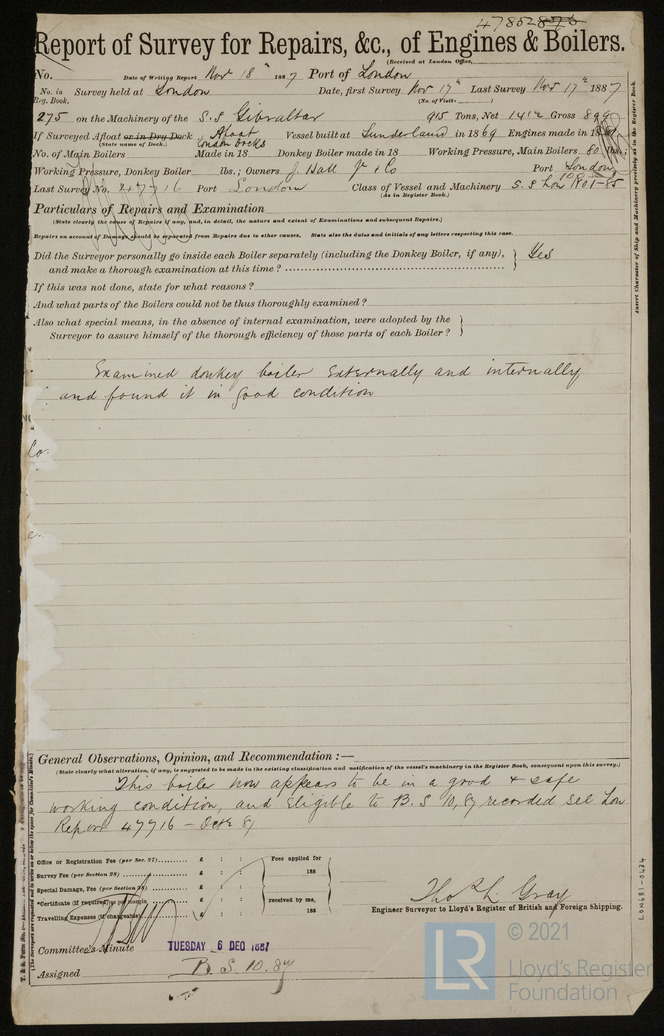 47852
Report of Survey for Repairs, &c., of Engines & Boilers.
(Received at London Office,
No. Date of Writing Report Nov 18th 1887 Port of London
No. in Reg. Book. Survey held at London Date, first Survey Nov 17th Last Survey Nov 17th 1887
(No. of Visits)
275 on the Machinery of the S.S Gibraltar 915 Tons, Net 1412 Gross
If Surveyed Afloat or in Dry Dock Afloat Vessel built at Sunderland in 1869 Engines made in 18
(State name of Dock.) London Docks
No. of Main Boilers Made in 18 Donkey Boiler made in 18 Working Pressure, Main Boilers 60 lbs.
Working Pressure, Donkey Boiler lbs.; Owners J. Hall Jr & Co Port London
Last Survey No. 47716 Port London Class of Vessel and Machinery S.S Lon
(As in Register Book.)
Particulars of Repairs and Examination
(State clearly the cause of Repairs if any, and, in detail, the nature and extent of Examinations and subsequent Repairs.)
Repairs on account of Damage should be separated from Repairs due to other causes. State also the dates and initials of any letters respecting this case.
Did the Surveyor personally go inside each Boiler separately (including the Donkey Boiler, if any), } Yes
and make a thorough examination at this time?
If this was not done, state for what reasons?
And what parts of the Boilers could not be thus thoroughly examined?
Also what special means, in the absence of internal examination, were adopted by the }
Surveyor to assure himself of the thorough efficiency of those parts of each Boiler?
Examined donkey boiler externally and internally
and found it in good condition
General Observations, Opinion, and Recommendation:—
(State clearly what alteration, if any, is suggested to be made in the existing classification and notification of the vessel's machinery in the Register Book, consequent upon this survey.)
This boiler now appears to be in a good & safe
working condition, and eligible to B.S 10,87 recorded see Lon
Report 47716 - Octr 87
Office or Registration Fee (per Sec. 27) £ : : Fees applied for
Survey Fee (per Section 28) £ : : 188
Special Damage, Fee (per Section 28) £ : :
*Certificate (if required) as per margin £ : : received by me,
Travelling Expenses (if chargeable) £ : : 188
Thos L. Gray
Engineer Surveyor to Lloyd's Register of British and Foreign Shipping.
Committee's Minute TUESDAY 6 DEC 1887
Assigned B.S. 10.87
Insert Character of Ship and Machinery precisely as in the Register Book.
LON681-0434
© 2021
LR
Lloyd's Register
Foundation